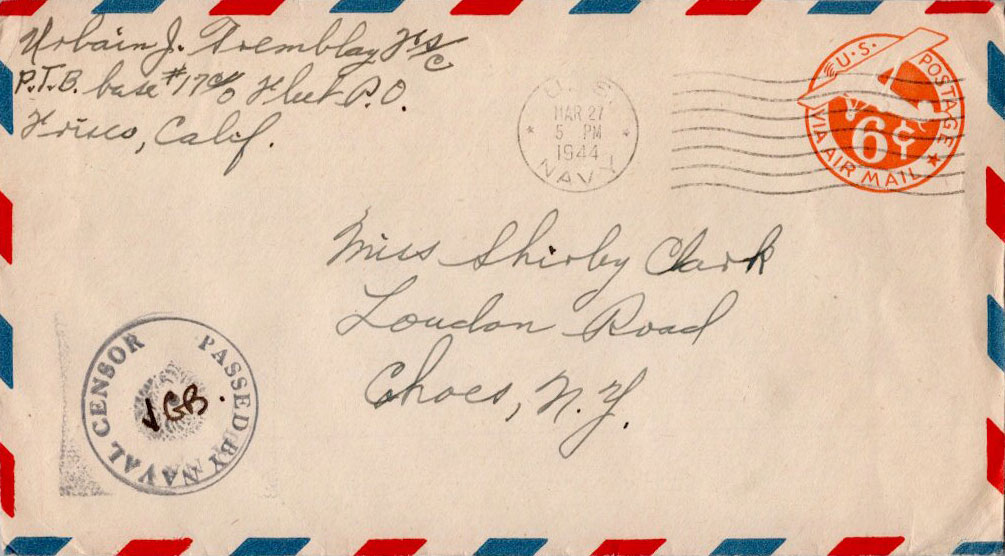 Urbain J. Tremblay F1/c
P.T.B. base #17 c/o Fleet P.O.
Frisco, Calif.
U.S.
MAR 27
5 PM
1944
NAVY
U.S. POSTAGE
6¢
VIA AIR MAIL
Miss Shirley Clark
Loudon Road
Cohoes, N.Y.
PASSED BY NAVAL CENSOR
JGB.